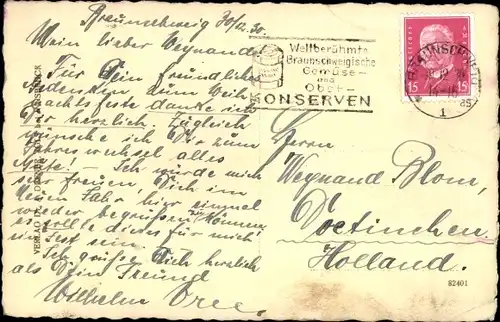 Braunschweig 30/12. 30.
Mein lieber Weynand
Für Dein freundliches
Gedenken zum Weih
nachtsfest danke ich
Dir herzlich. Zugleich
wünsche ich Dir zum
Jahreswechsel alles
Gute! – Ich würde mich
sehr freuen, Dich im
Neuen Jahr hier einmal
wieder begrüßen zu können
es solle dieses für mich
ein Fest sein.
Ich grüße Dich herzlich
als Dein Freund
Wilhelm
Weltberühmte
Braunschweigische
Gemüse-
und
Obst-
KONSERVEN
BRAUNSCHWEIG
1
15 15
Herrn
Weynand Blom,
Doetinchem
Holland.
82401